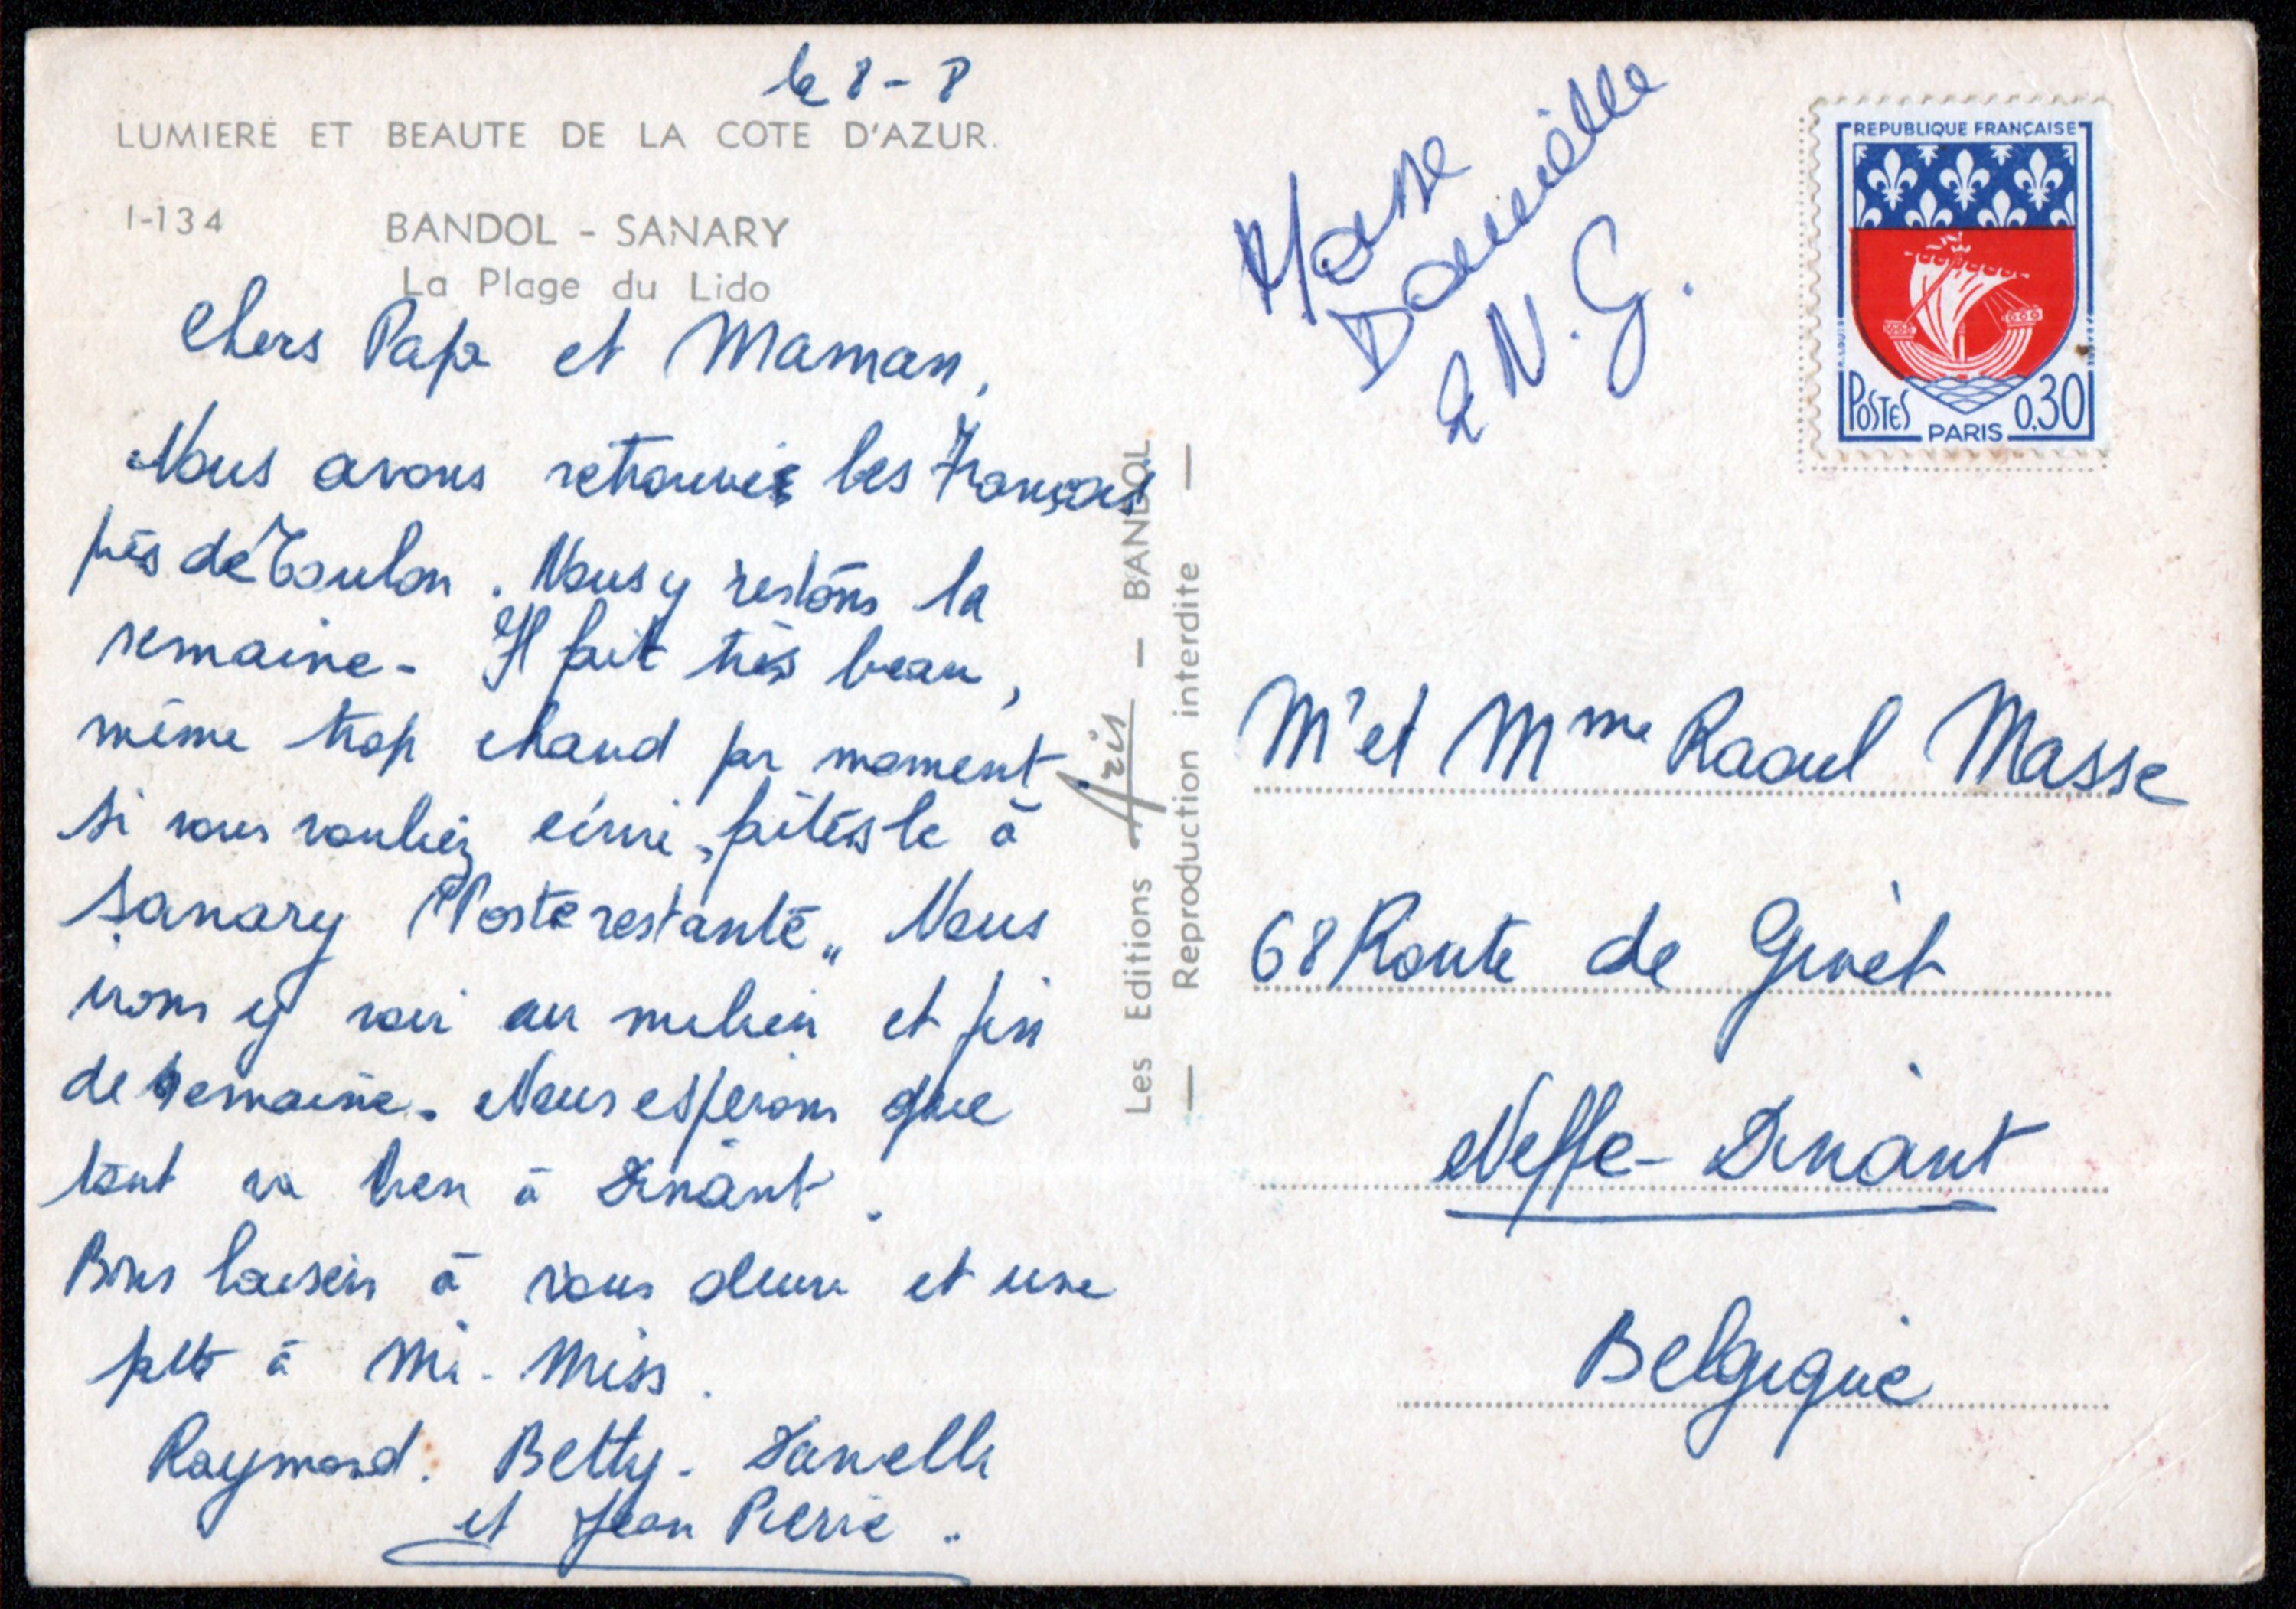 le 8-8
LUMIERE ET BEAUTE DE LA COTE D'AZUR.
I-134
BANDOL - SANARY
La Plage du Lido
Chers Papa et Maman,
Nous avons retrouvés les Français
près de Toulon. Nous y restons la
semaine - Il fait très beau,
même trop chaud par moment.
Si vous vouliez écrire, faites le à
Sanary "Poste restante„ Nous
irons y voir au milieu et fin
de semaine. Nous esperons que
tout va bien à Dinant.
Bons baisers à vous deux et une
à Mi-Miss.
Raymond. Betty - Danielle
et Jean Pierre.
Les Editions Aris - BANDOL
— Reproduction interdite —
Masse
Danielle
2 N. G.
REPUBLIQUE FRANÇAISE
POSTES PARIS 0,30
Mr et Mme Raoul Masse
68 Route de Givet
Neffe - Dinant
Belgique